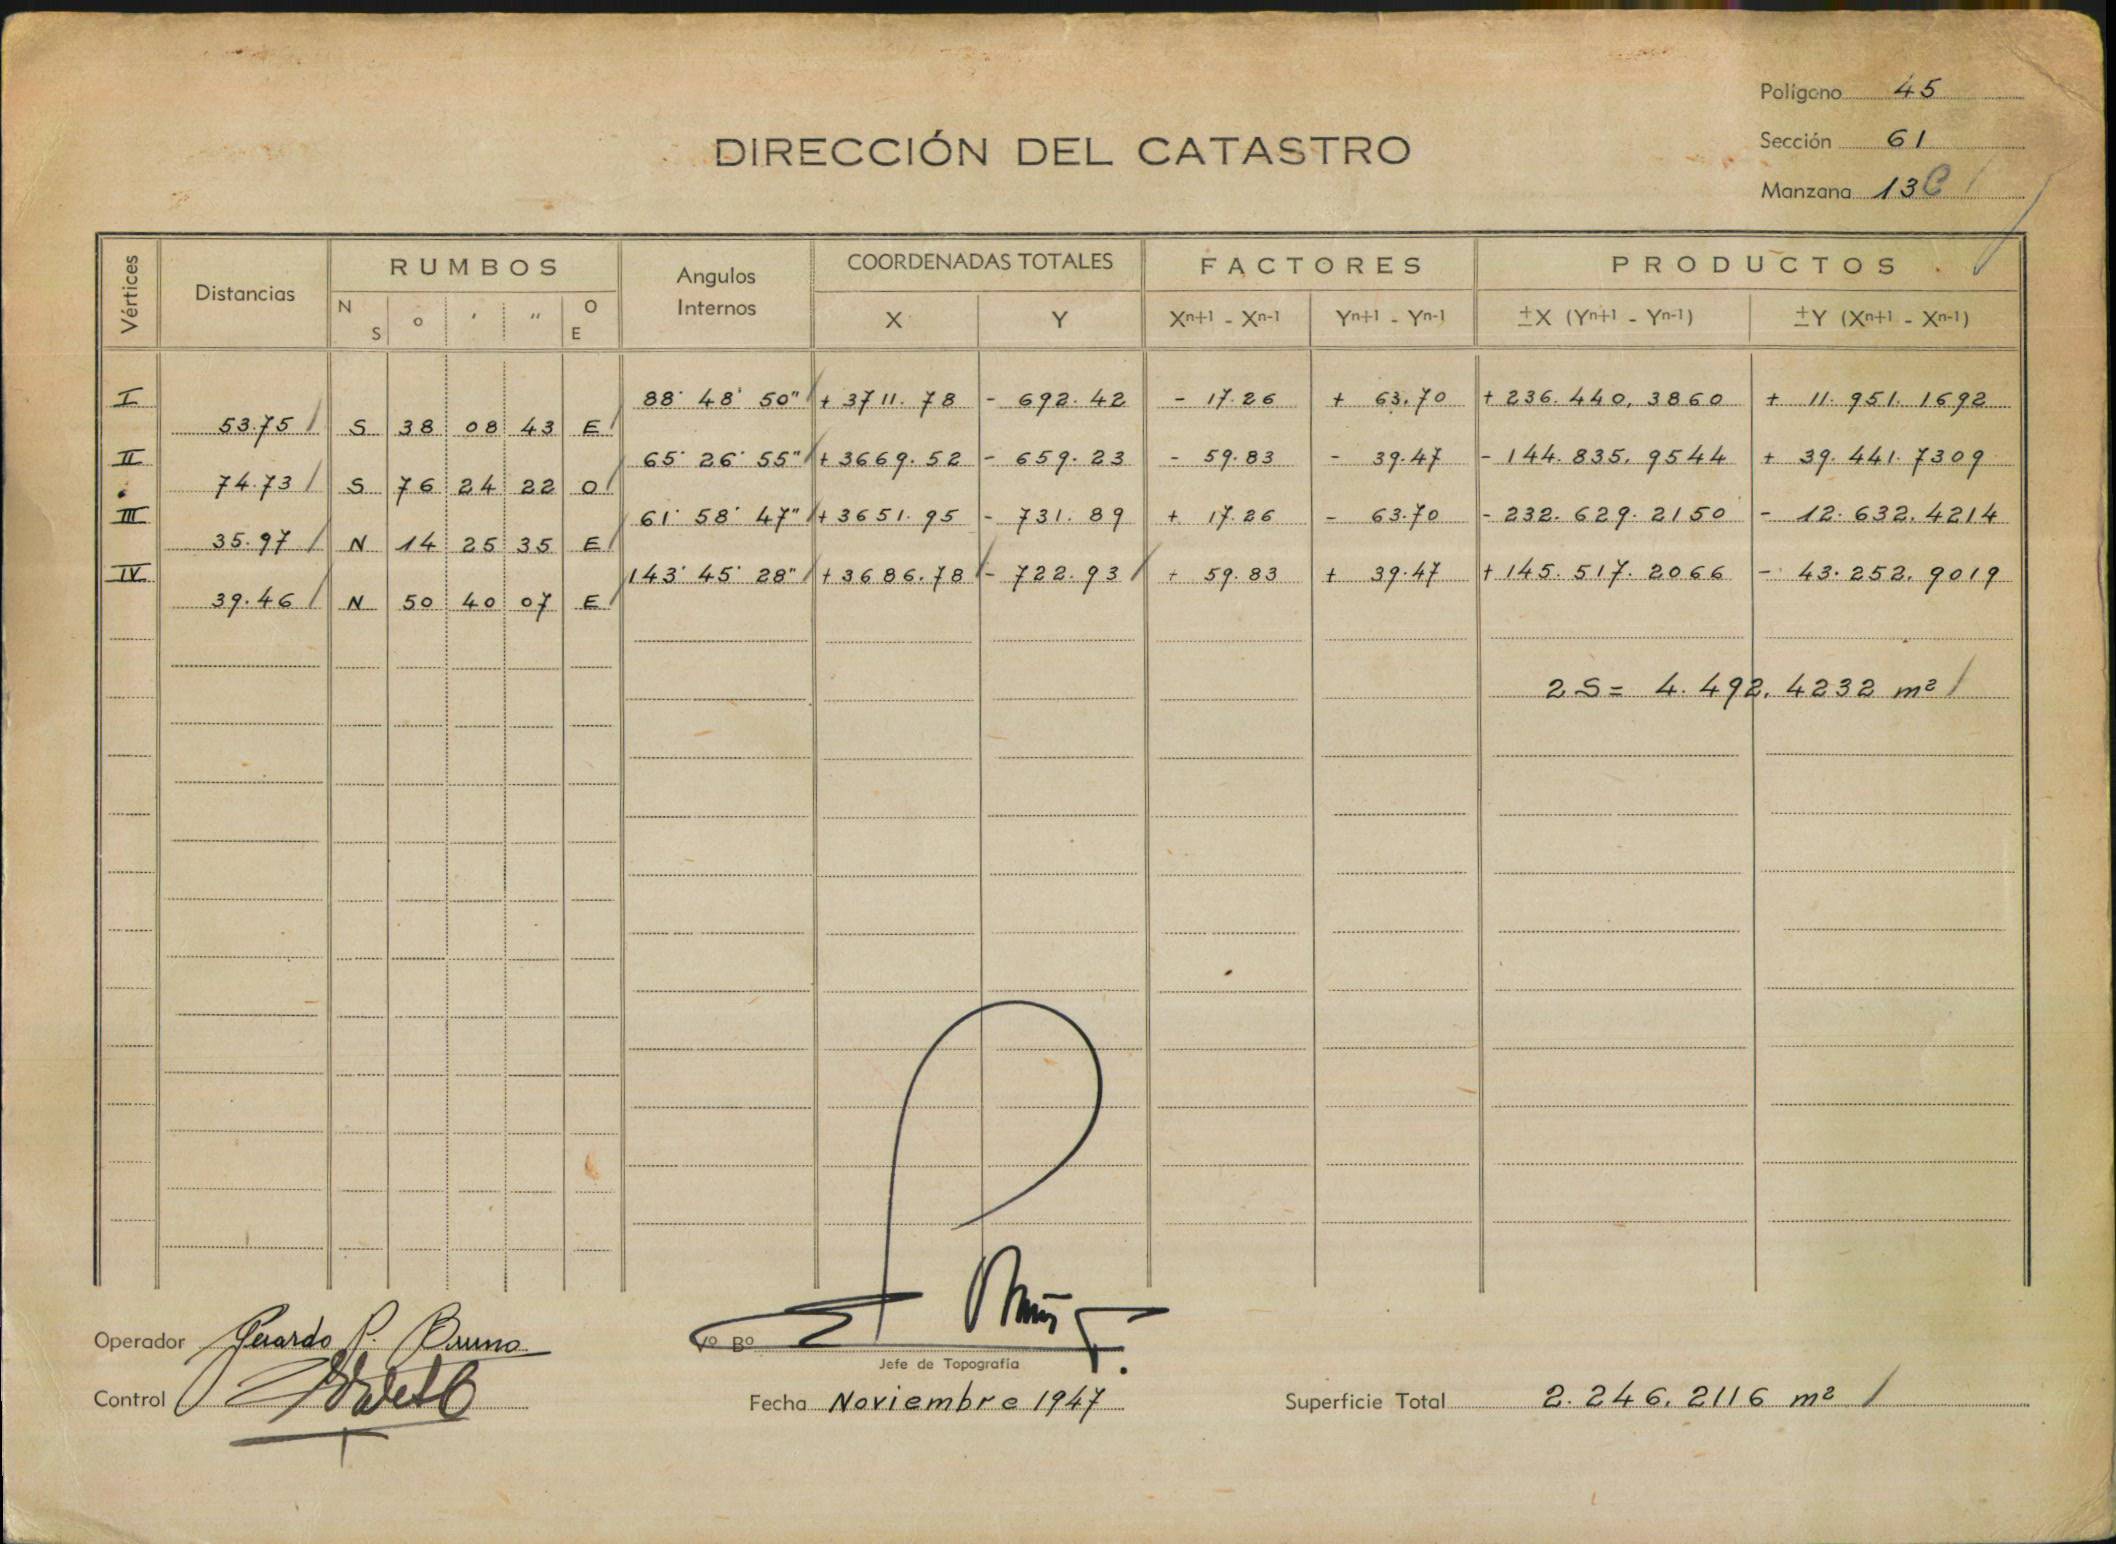 Polígono 45
Sección 61
Manzana 13C
DIRECCIÓN DEL CATASTRO
Vértices Distancias RUMBOS Angulos Internos COORDENADAS TOTALES FACTORES PRODUCTOS
N S o ′ ″ O E X Y Xn+1 - Xn-1 Yn+1 - Yn-1 ±X (Yn+1 - Yn-1) ±Y (Xn+1 - Xn-1)
I 88° 48' 50" + 3711.78 - 692.42 - 17.26 + 63.70 + 236.440,3860 + 11.951.1692
53.75 S 38 08 43 E
II 65° 26' 55" + 3669.52 - 659.23 - 59.83 - 39.47 - 144.835,9544 + 39.441.7309
74.73 S 76 24 22 O
III 61° 58' 47" + 3651.95 - 731.89 + 17.26 - 63.70 - 232.629.2150 - 12.632.4214
35.97 N 14 25 35 E
IV 143° 45' 28" + 3686.78 - 722.93 + 59.83 + 39.47 + 145.517.2066 - 43.252.9019
39.46 N 50 40 07 E
2S = 4.492,4232 m²
Operador Gerardo P. Bruno
Vº Bº
Jefe de Topografía
Control
Fecha Noviembre 1947
Superficie Total 2.246,2116 m²